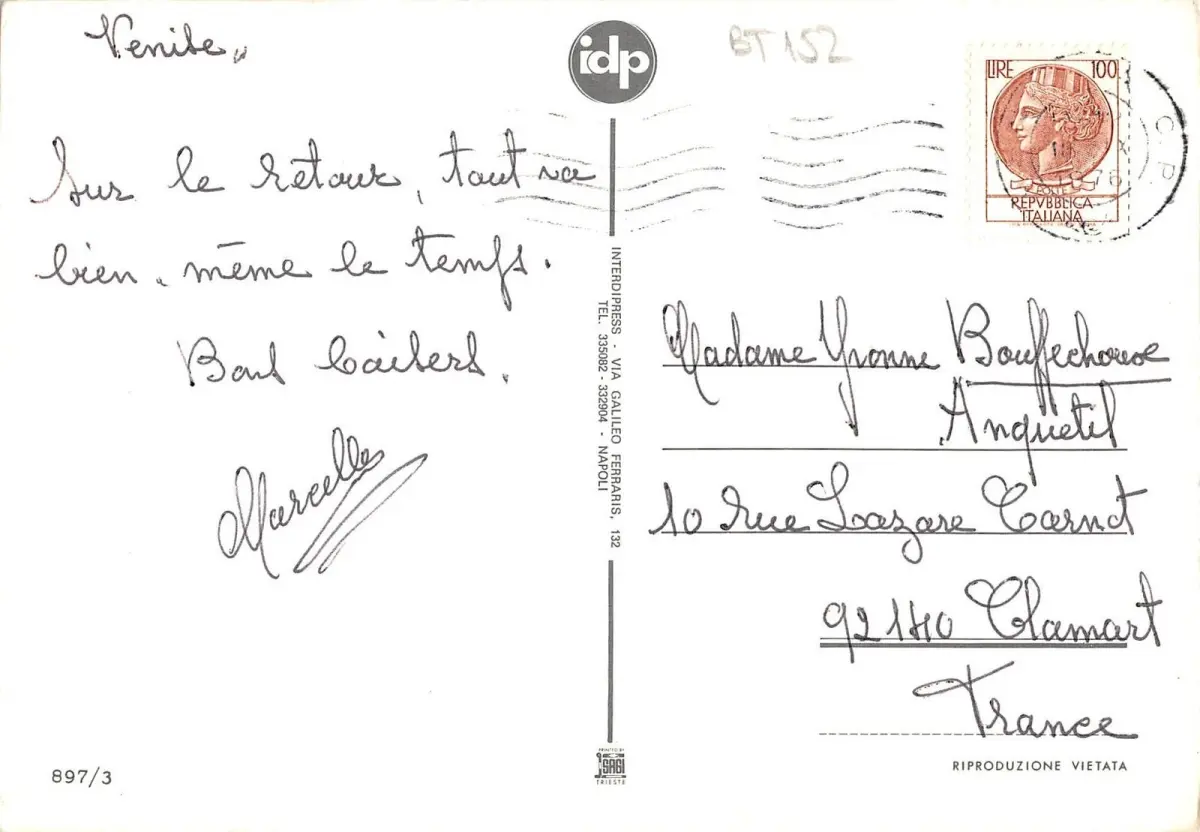 Venise,,
Sur le retour, tout va
bien, même le temps.
Bons baisers.
Marcelle
idp
BT 152
LIRE 100
POSTE
REPVBBLICA
ITALIANA
C.P.
1976
INTERDIPRESS - VIA GALILEO FERRARIS, 132
TEL. 335082 - 332904 - NAPOLI
Madame Yvonne
Anquetil
10 rue Lazare Carnot
92140 Clamart
France
897/3
PRINTED BY
SAGI
TRIESTE
RIPRODUZIONE VIETATA